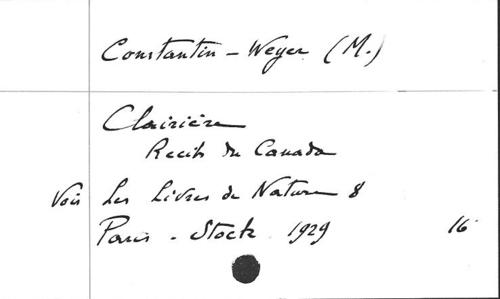 Constantin-Weyer (M.)
Clairière
Recits du Canada
Voir Les Livres de Nature 8
Paris - Stock 1929 16